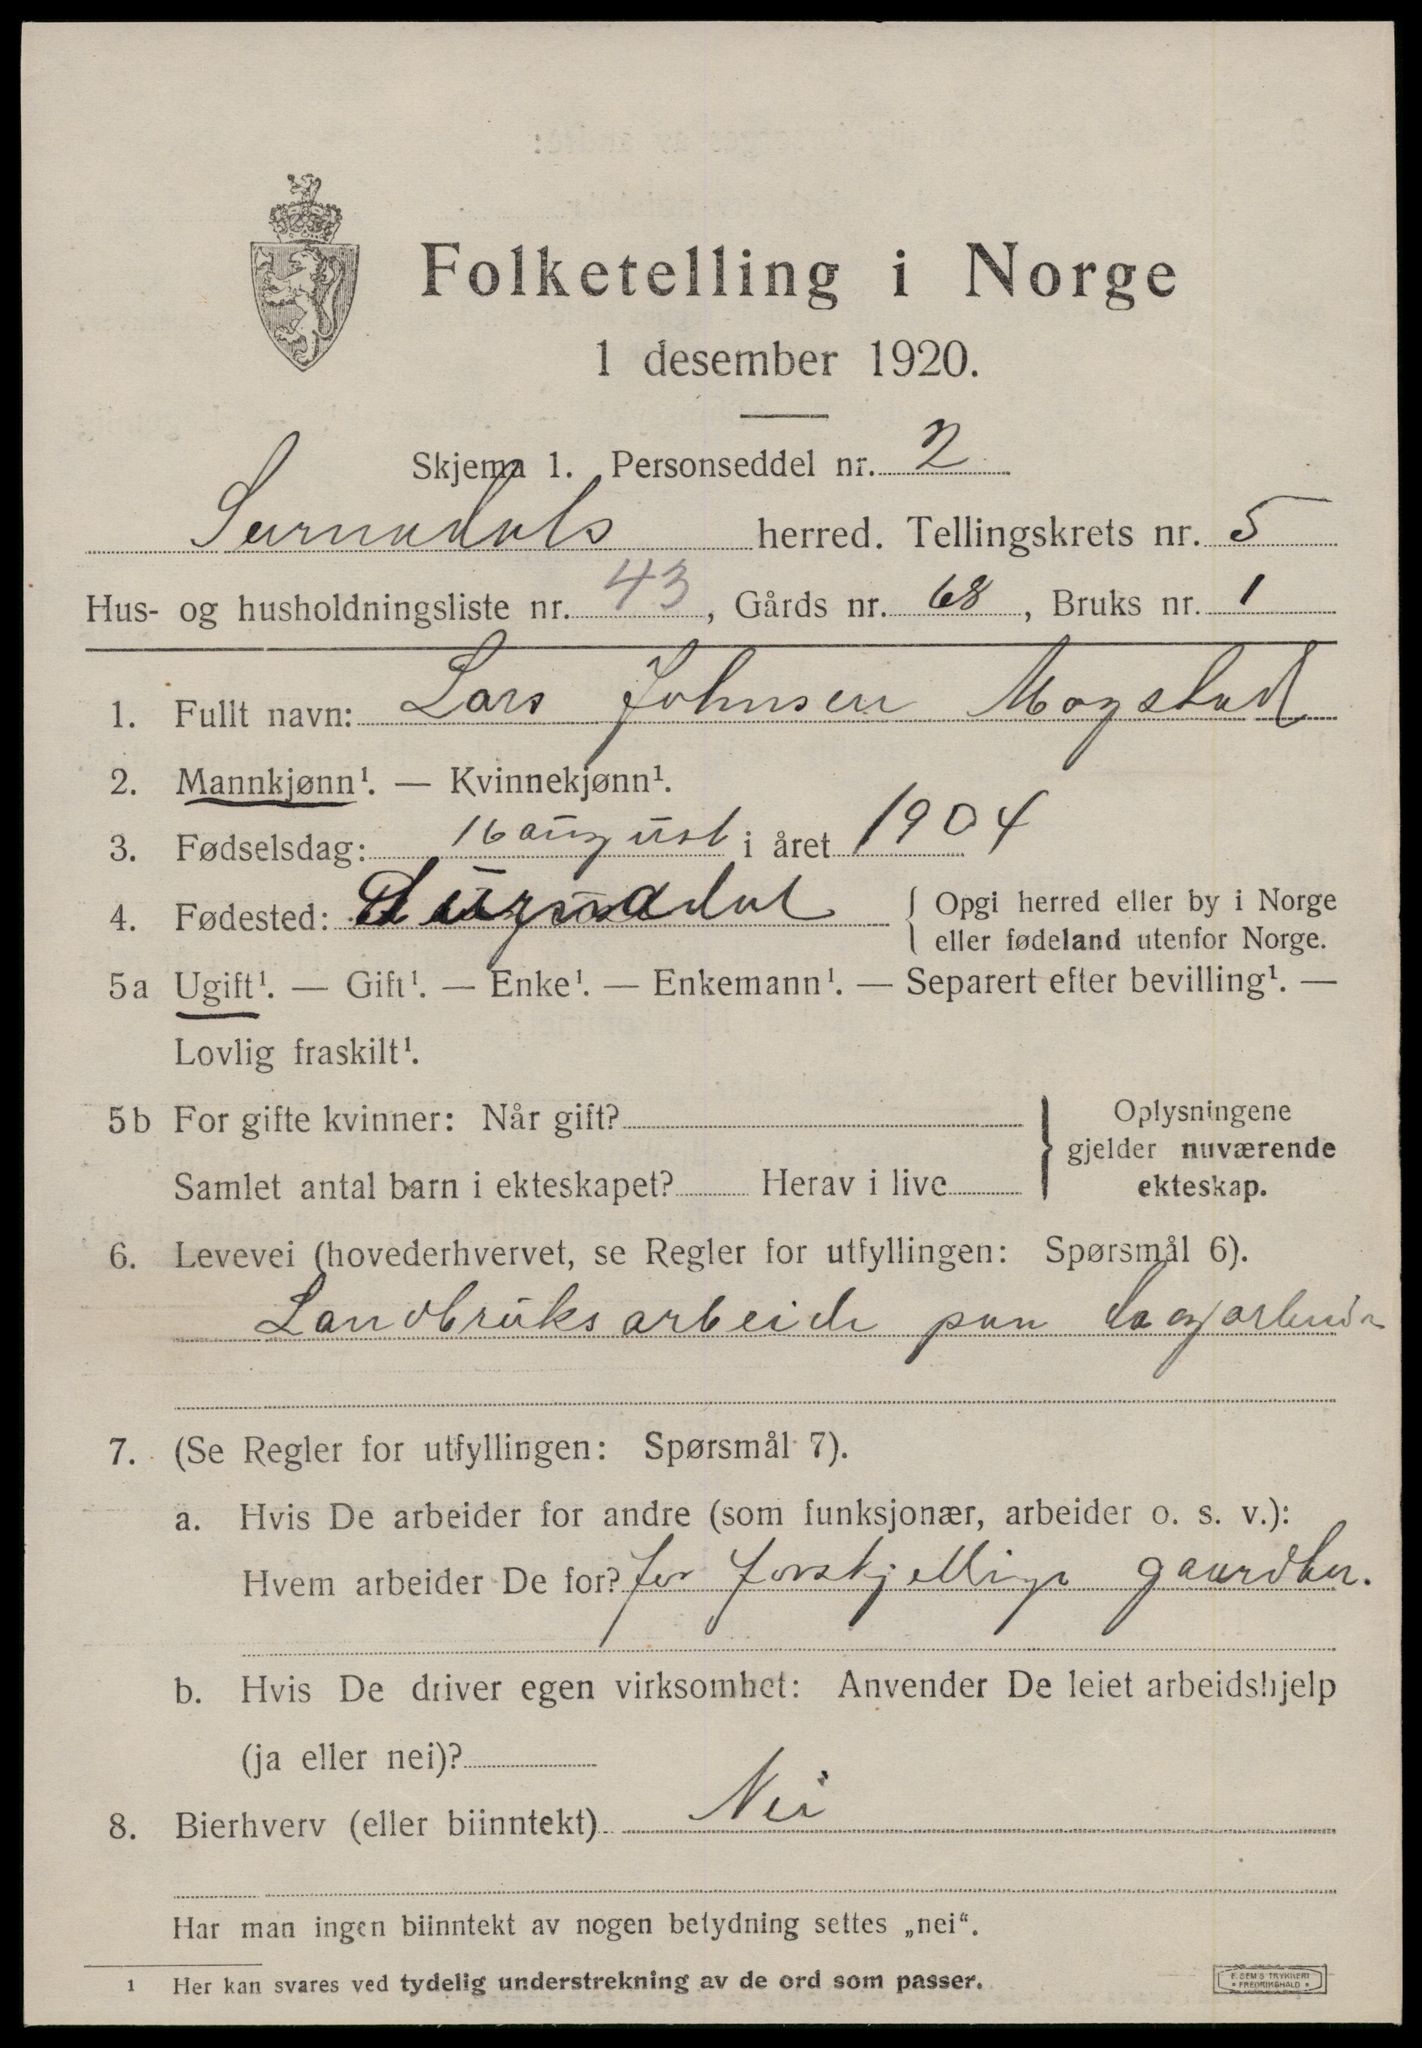 Folketelling i Norge
1 desember 1920.
Skjema 1. Personseddel nr. 2
Surnadals herred. Tellingskrets nr. 5
Hus- og husholdningsliste nr. 43, Gårds nr. 68, Bruks nr. 1
1. Fullt navn: Lars Johnsen Mogstad
2. Mannkjønn¹. — Kvinnekjønn¹.
3. Fødselsdag: 16 august i året 1904
4. Fødested: Surnadal { Opgi herred eller by i Norge
eller fødeland utenfor Norge.
5a Ugift¹. — Gift¹. — Enke¹. — Enkemann¹. — Separert efter bevilling¹. —
Lovlig fraskilt¹.
5b For gifte kvinner: Når gift?
Samlet antal barn i ekteskapet? Herav i live
} Oplysningene
gjelder nuværende
ekteskap.
6. Levevei (hovederhvervet, se Regler for utfyllingen: Spørsmål 6).
Landbruksarbeide paa
7. (Se Regler for utfyllingen: Spørsmål 7).
a. Hvis De arbeider for andre (som funksjonær, arbeider o. s. v.):
Hvem arbeider De for? for forskjellige
b. Hvis De driver egen virksomhet: Anvender De leiet arbeidshjelp
(ja eller nei)?
8. Bierhverv (eller biinntekt) Nei
Har man ingen biinntekt av nogen betydning settes „nei“.
1 Her kan svares ved tydelig understrekning av de ord som passer.
E. SEM'S TRYKKERI
FREDRIKSHALD